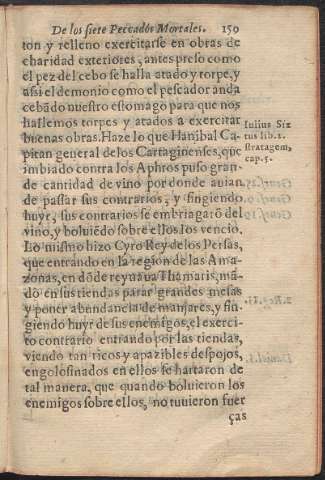 De los siete Peccados Mortales. 159
ton y relleno exercitarse en obras de
charidad exteriores, antes preso como
el pez del cebo se halla atado y torpe, y
assi el demonio como el pescador anda
cebãdo nuestro estomago para que nos
hallemos torpes y atados a exercitar
buenas obras. Haze lo que Hanibal Ca-
pitan general delos Cartaginenses, que
imbiado contra los Aphros puso gran-
de cantidad de vino por donde auian
de passar sus contrarios, y fingiendo
huyr, sus contrarios se embriagarõ del
vino, y boluiẽdo sobre ellos los vencio.
Lo mismo hizo Cyro Rey de los Persas,
que entrando en la region de las Ama-
zonas, en dõde reynaua Thamaris, mã-
dò en sus tiendas parar grandes mesas
y poner abundancia de manjares, y fin-
giendo huyr de sus enemigos, el exerci-
to contrario entrando por las tiendas,
viendo tan ricos y apazibles despojos,
engolosinados en ellos se hartaron de
tal manera, que quando boluieron los
enemigos sobre ellos, no tuuieron fuer
ças
Iulius Six
tus lib. 2.
stratagem,
cap. 5.